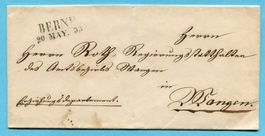 BERNE
20 MAY. 33
Herrn
Herrn Roth, Regierungsstatthalter
des Amtsbezirks Wangen
in
Erziehungsdepartement.
Wangen.